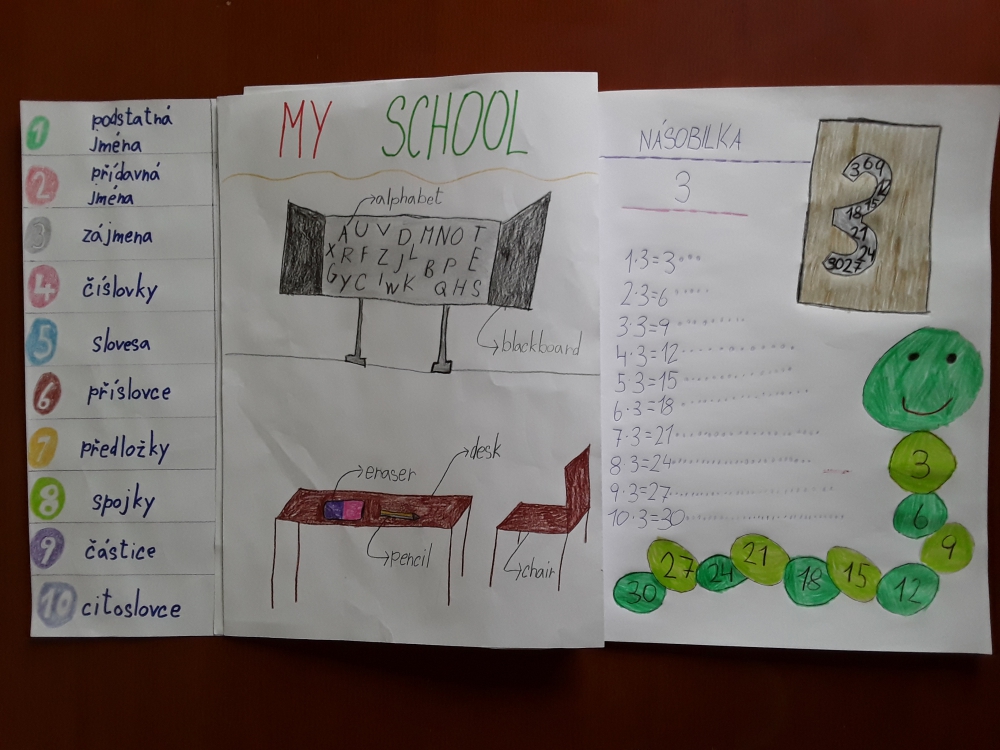 1 podstatná
jména
2 přídavná
jména
3 zájmena
4 číslovky
5 slovesa
6 příslovce
7 předložky
8 spojky
9 částice
10 citoslovce
MY SCHOOL
alphabet
A U V D M N O T
X R F Z J L B P E
G Y C I W K Q H S
blackboard
desk
eraser
pencil
chair
NÁSOBILKA
3
1·3=3
2·3=6
3·3=9
4·3=12
5·3=15
6·3=18
7·3=21
8·3=24
9·3=27
10·3=30
3 6 9
12
18 15
21
24
30 27
3
6
9
30 27 24 21 18 15 12